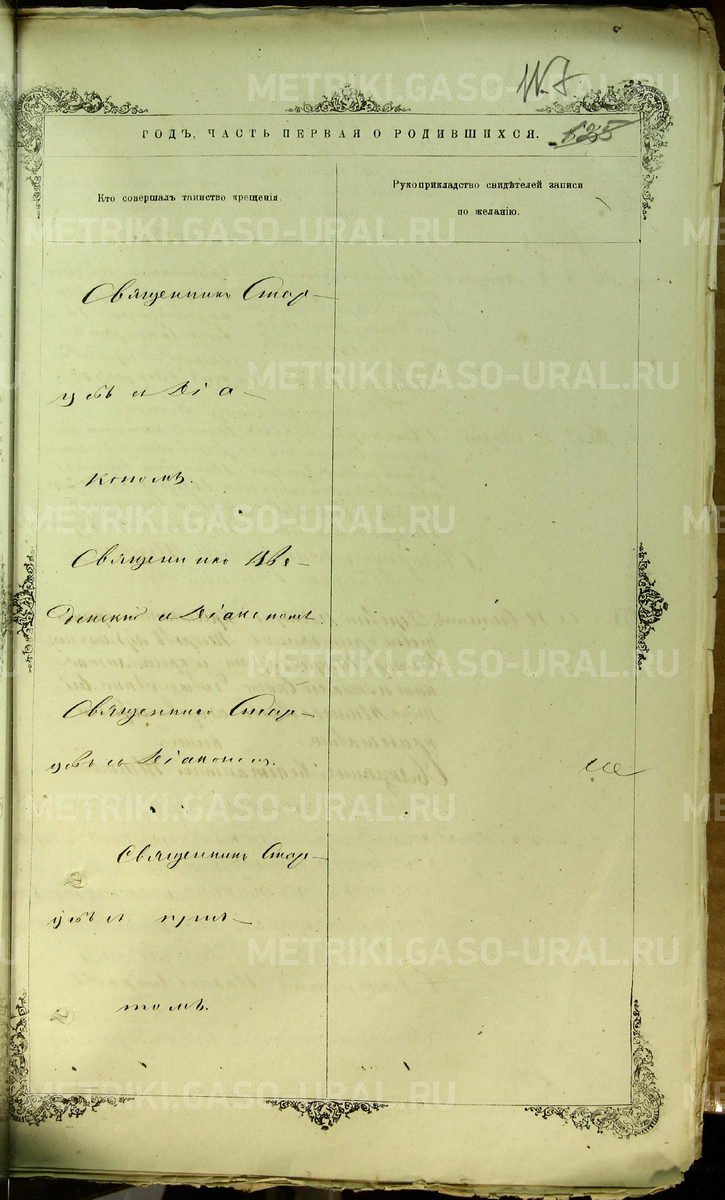 METRIKI.GASO-URAL.RU
ГОДЪ, ЧАСТЬ ПЕРВАЯ О РОДИВШИХСЯ.
525
Кто совершалъ таинство крещенія.
Рукоприкладство свидѣтелей записи
по желанію.
Священникъ Стар-
цевъ съ Діа-
кономъ.
Священникъ
съ Діакономъ
Священникъ Стар-
цевъ съ Діакономъ.
Священникъ Стар-
цевъ съ прич-
томъ.